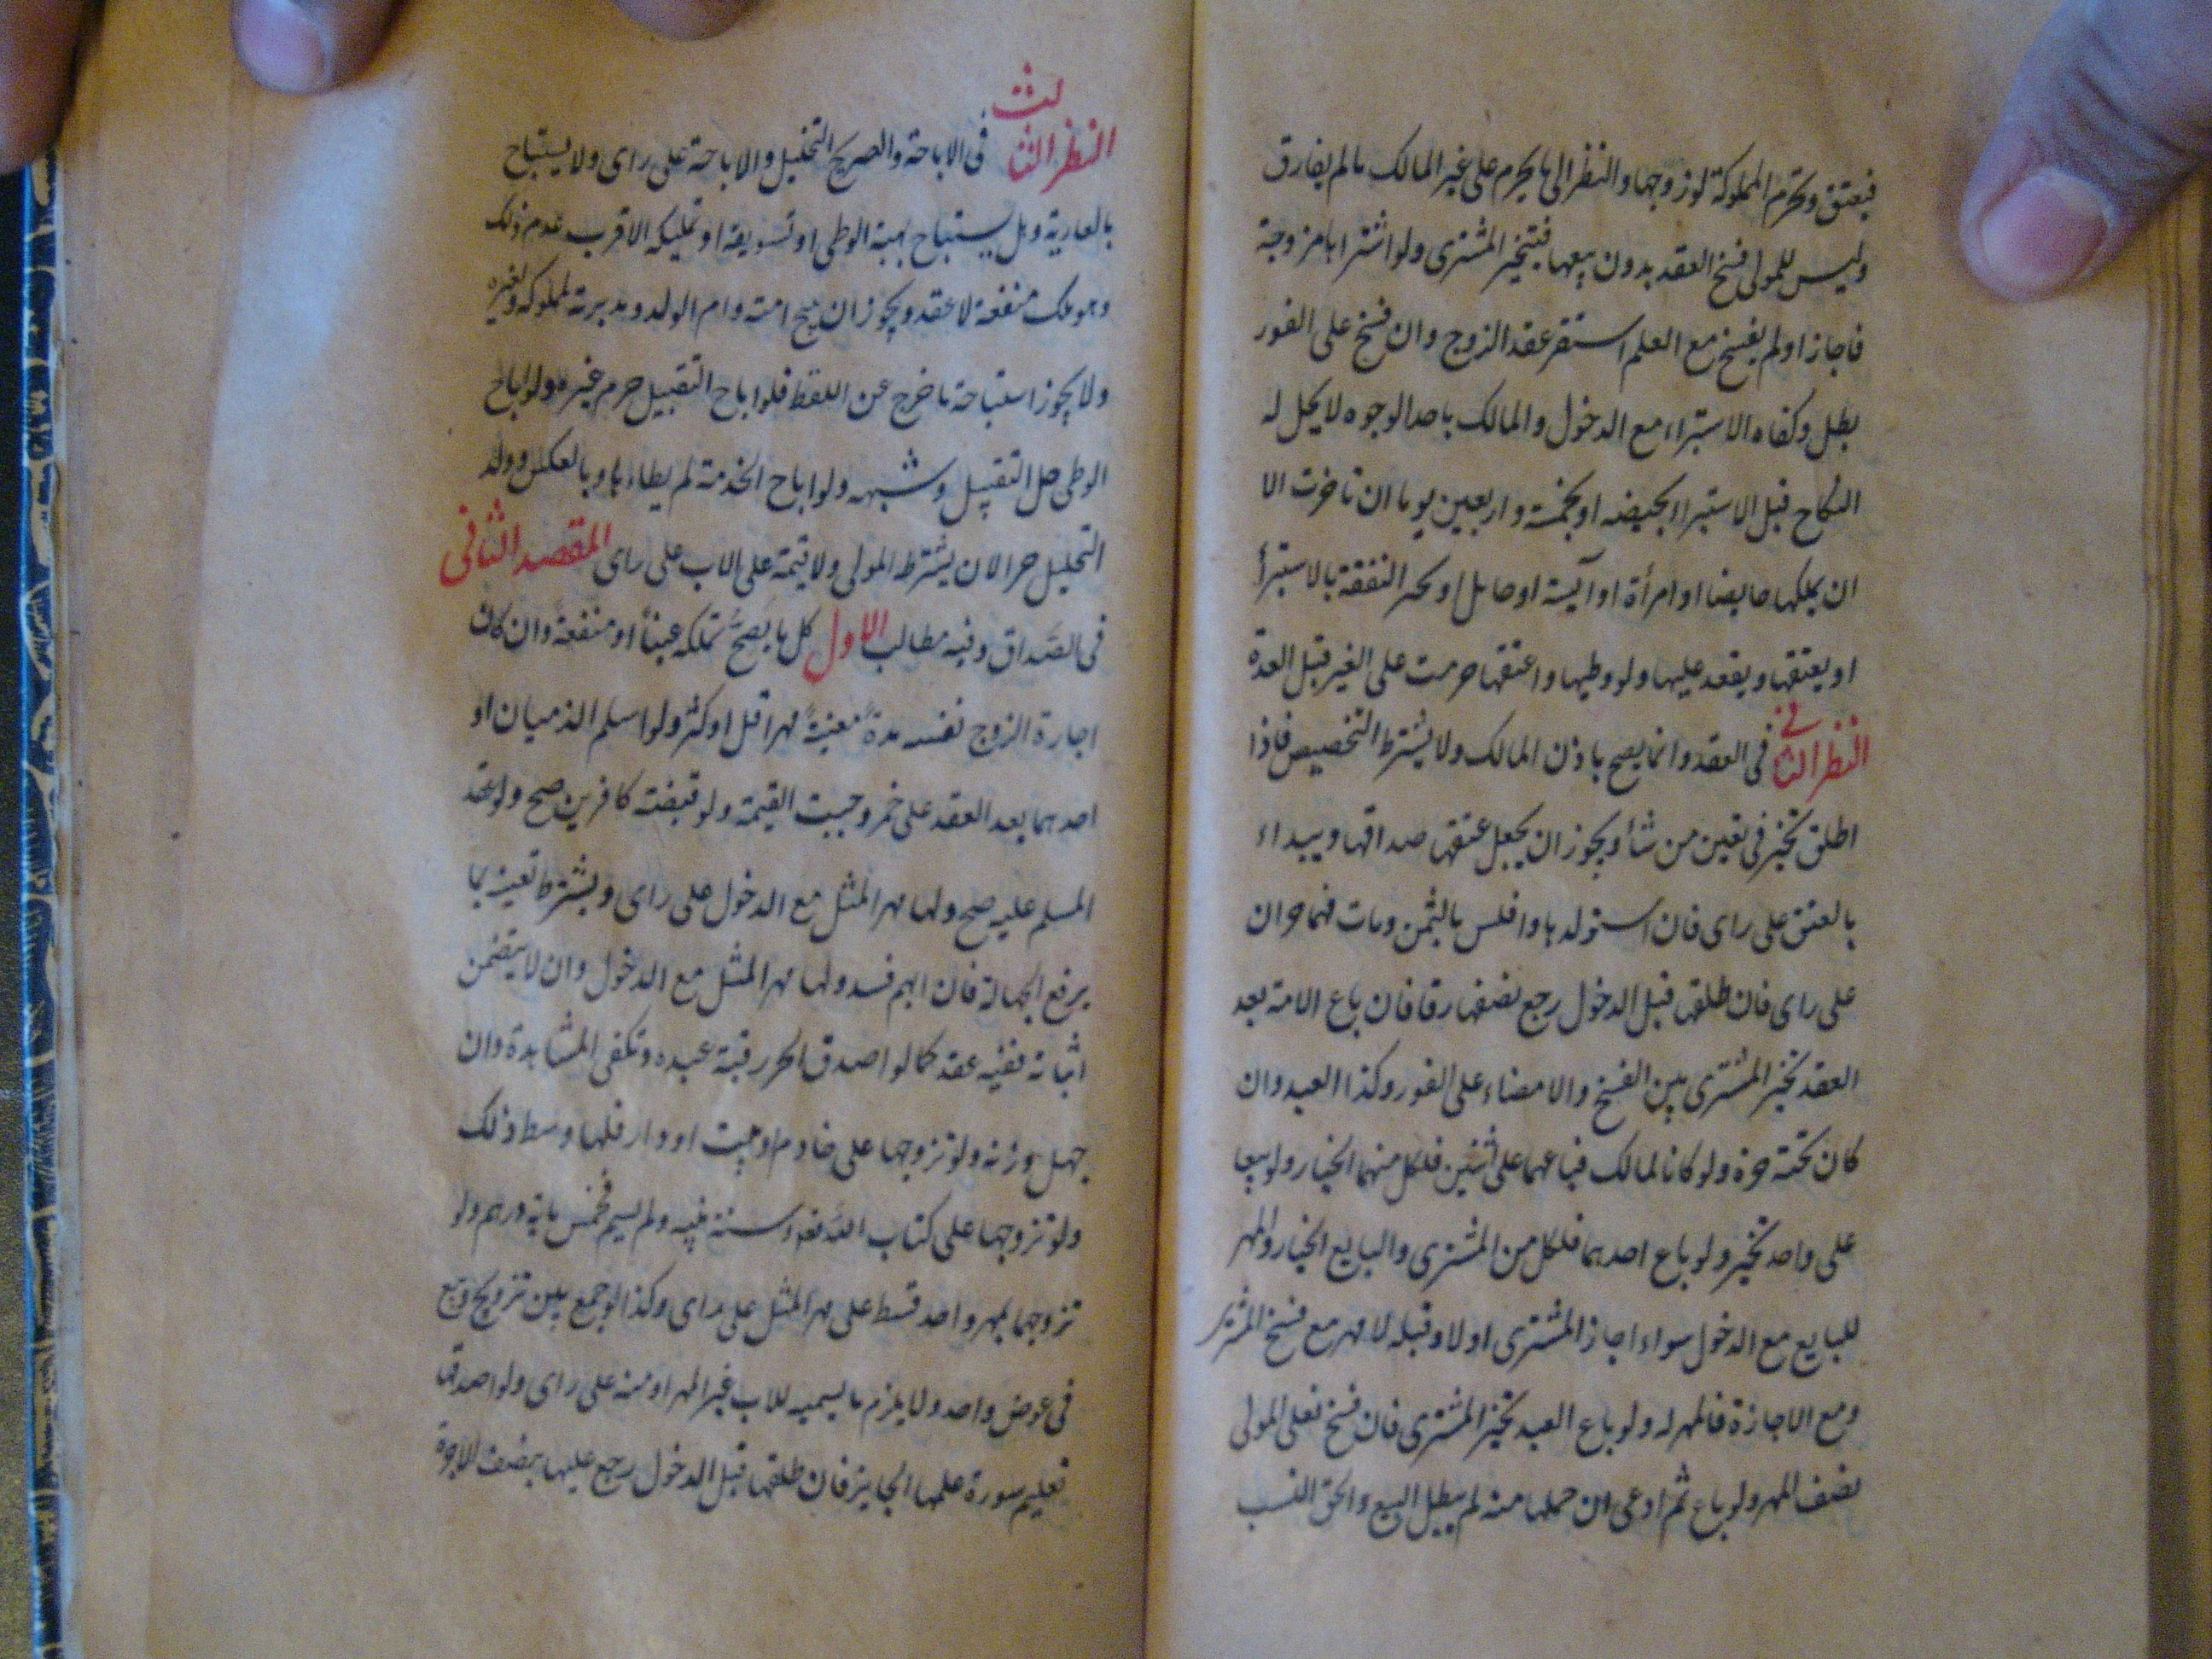 فيعتق وتحرم المملوكة لو زوجها والنظر الى ما يحرم على غير المالك ما لم يفارق
وليس للمولى فسخ العقد بدون بيعها فيتخير المشترى ولو اشتراها مزوجة
فاجاز او لم يفسخ مع العلم استقر عقد الزوج وان فسخ على الفور
بطل وكفاه الاستبراء مع الدخول والمالك باحد الوجوه لا يحل له
النكاح قبل الاستبراء بحيضه او بخمسة واربعين يوما ان تاخرت الا
ان يملكها حايضا او امرأة او آيسة او حامل او يخبر الثقة بالاستبرأ
او يعتقها ويعقد عليها ولو وطيها واعتقها حرمت على الغير قبل العدة
النظر الثانى فى العقد وانما يصح باذن المالك ولا يشترط التخصيص فاذا
اطلق تخير فى تعيين من شاء ويجوز ان يجعل عتقها صداقها ويبداء
بالعتق على راى فان استولدها وافلس بالثمن ومات فهما حران
على راى فان طلقها قبل الدخول رجع نصفها رقا فان باع الامة بعد
العقد تخير المشترى بين الفسخ والامضاء على الفور وكذا العبد وان
كان تحته حرة ولو كانا لمالك فباعهما على اثنين فلكل منهما الخيار ولو بيعا
على واحد تخير ولو باع احدهما فلكل من المشترى والبايع الخيار والمهر
للبايع مع الدخول سواء اجاز المشترى اولا وقبله لا مهر مع فسخ المشتر
ومع الاجازة فالمهر له ولو باع العبد تخير المشترى فان فسخ فعلى المولى
نصف المهر ولو باع ثم ادعى ان حملها منه لم يبطل البيع والحق النسب
النظر الثالث فى الاباحة والصريح التحليل والاباحة على راى ولا يستباح
بالعارية وهل يستباح بهبة الوطى او تسويغه او تمليكه الاقرب عدم ذلك
وهو ملك منفعة لا عقد ويجوز ان يبيح امته وام الولد ومدبرته لمملوكه ولغيره
ولا يجوز استباحة ما خرج عن اللفظ فلو اباح التقبيل حرم غيره ولو اباح
الوطى حل التقبيل وشبهه ولو اباح الخدمة لم يطاءها وبالعكس وولد
التحليل حر الا ان يشترط المولى ولا قيمة على الاب على راى المقصد الثانى
فى الصداق وفيه مطالب الاول كل ما يصح تملكه عينا او منفعة وان كان
اجارة الزوج نفسه مدة معينة مهر اقل او كثر ولو اسلم الذميان او
احدهما بعد العقد على خمر وجبت القيمة ولو قبضته كافرين صح ولو عقد
المسلم عليه صح ولها مهر المثل مع الدخول على راى ويشترط تعينه بما
يرفع الجهالة فان ابهم فسد ولها مهر المثل مع الدخول وان لا يتضمن
اثباته نفيه عقد كما لو اصدق الحر رقبة عبده وتكفى المشاهدة وان
جهل وزنه ولو تزوجها على خادم او بيت او دار فلها وسط ذلك
ولو تزوجها على كتاب الله وسنة نبيه ولم يسم فخمس ماية درهم ولو
تزوجهما بمهر واحد قسط على مهر المثل على راى وكذا لو جمع بين تزويج وبيع
فى عوض واحد ولا يلزم ما يسميه للاب غير المهر او منه على راى ولو اصدقها
تعليم سورة علمها الجايز فان طلقها قبل الدخول رجع عليها بنصف الاجرة